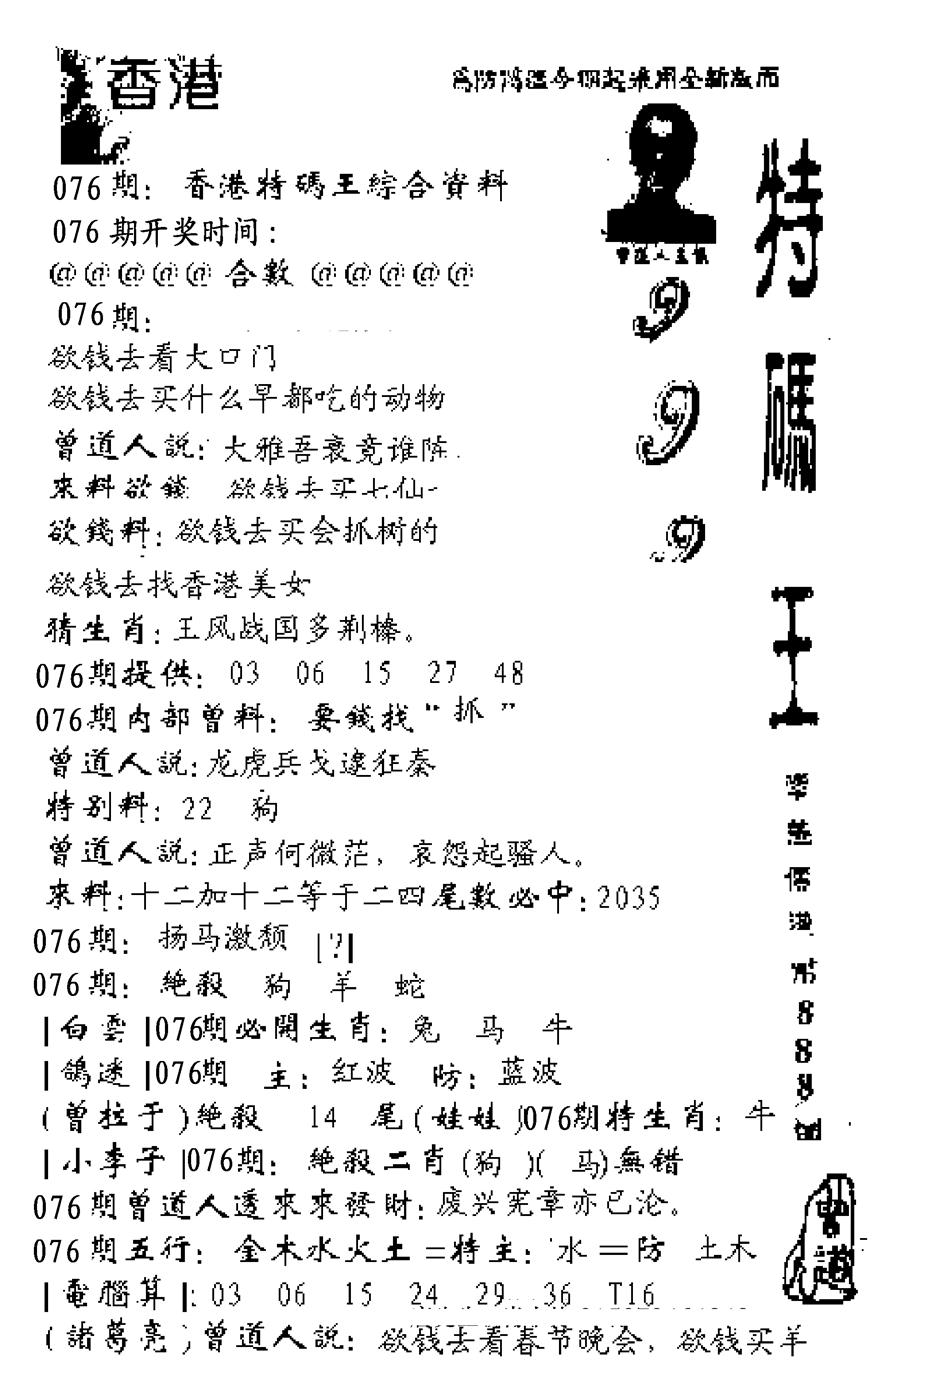 香港
為防混淆今期起采用全新版面
076期： 香港特碼王綜合資料
076 期开奖时间：
@@@@@ 合數 @@@@@
076期：
欲钱去看大口门
欲钱去买什么早都吃的动物
曾道人説：大雅吾衰竞谁陈.
來料欲錢 欲钱去买七仙
欲錢料：欲钱去买会抓树的
欲钱去找香港美女
猜生肖：王风战国多荆榛。
076期提供： 03 06 15 27 48
076期内部曾料： 要錢找“抓”
曾道人説：龙虎兵戈逮狂秦
特别料：22 狗
曾道人説：正声何微茫，哀怨起骚人。
來料：十二加十二等于二四尾數必中：2035
076期： 扬马激颓 |?|
076期： 絶殺 狗 羊 蛇
|白雲|076期必開生肖：兔 马 牛
|鴿迷|076期 主：红波 防：蓝波
(曾拉于)絶殺 14 尾(娃娃)076期特生肖：牛
|小李子|076期： 絶殺二肖(狗 )( 马)無錯
076期曾道人透來來發財：废兴宪章亦已沦。
076期五行： 金木水火土=特主：水=防 土木
|電腦算|：03 06 15 24 29 36 T16
(諸葛亮)曾道人説： 欲钱去看春节晚会，欲钱买羊
特碼王
999
曾道人主供
港币888
曾道